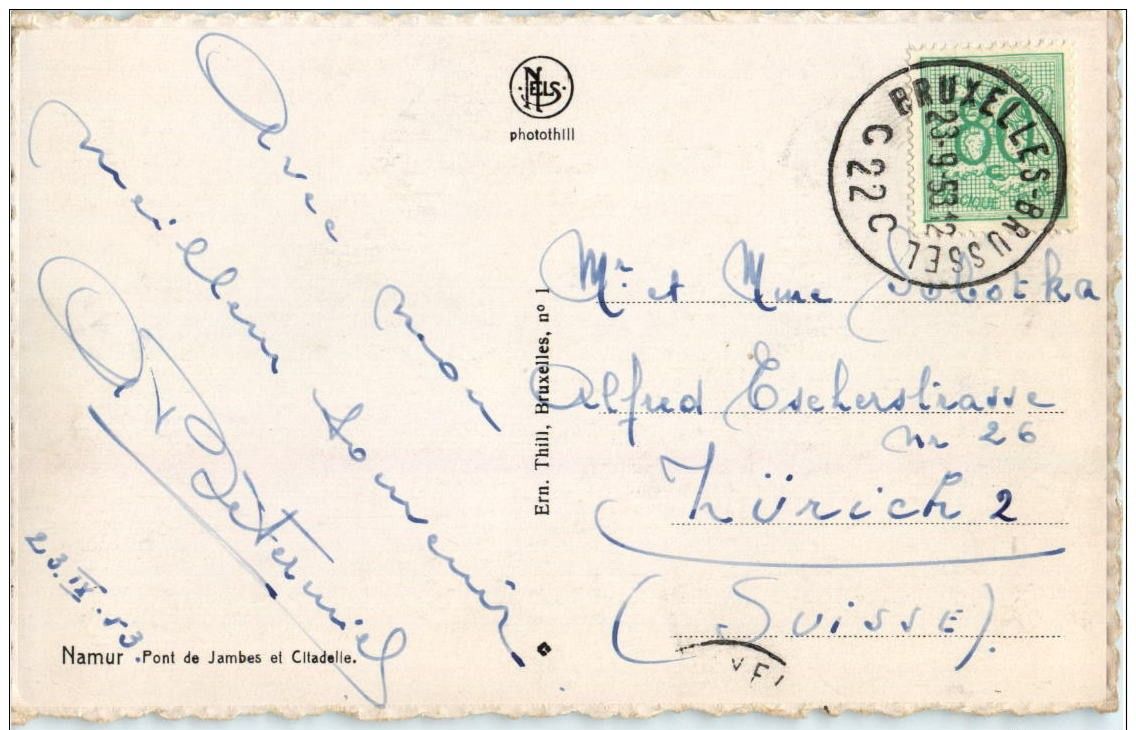 Avec mon
meilleur souvenir
23.IX.53
Namur .Pont de Jambes et Citadelle.
NELS
photothill
Ern. Thill, Bruxelles, nº 1
BRUXELLES-BRUSSEL
23-9-53
C 22 C
80
Mr et Mme Sobotka
Alfred Escherstrasse
nr 26
Zürich 2
(SUISSE).